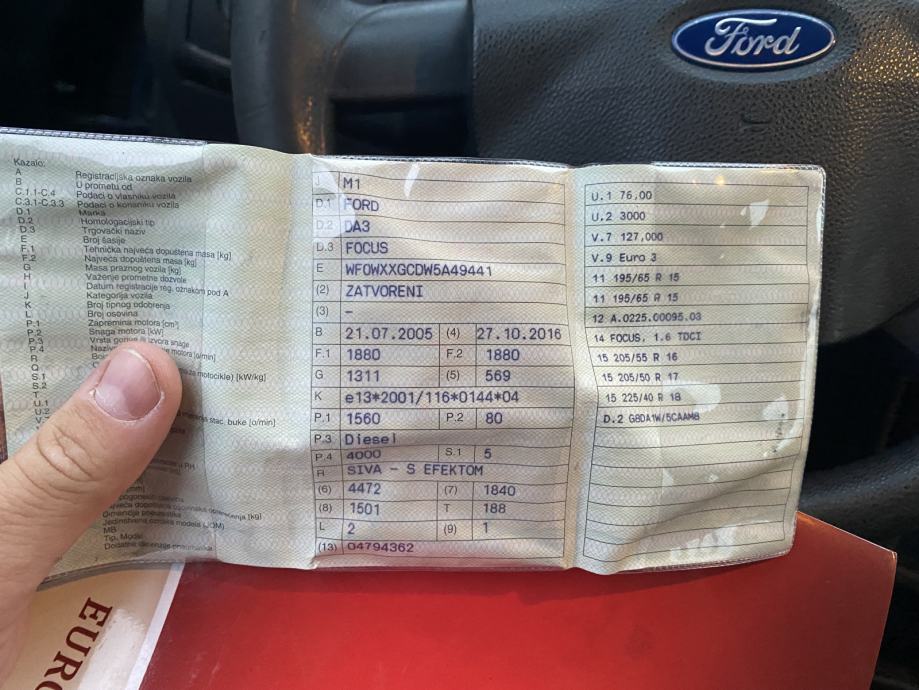 Ford
Kazalo:
A Registracijska oznaka vozila
B U prometu od
C.1.1-C.4 Podaci o vlasniku vozila
C.3.1-C.3.3 Podaci o korisniku vozila
D.1 Marka
D.2 Homologacijski tip
D.3 Trgovački naziv
E Broj šasije
F.1 Tehnička najveća dopuštena masa [kg]
F.2 Najveća dopuštena masa [kg]
G Masa praznog vozila [kg]
H Važenje prometne dozvole
I Datum registracije reg. oznakom pod A
J Kategorija vozila
K Broj tipnog odobrenja
L Broj osovina
P.1 Zapremina motora [cm³]
P.2 Snaga motora [kW]
P.3 Vrsta goriva ili izvora snage
P.4 motora [o/min]
R
Q za motocikle) [kW/kg]
S.1
S.2
T
U.1 stac. buke [o/min]
U.2
[kg]
Jedinstvena oznaka modela (JOM)
MB
Tip, Model
Dodatne dimenzije pneumatika
J M1
D.1 FORD
D.2 DA3
D.3 FOCUS
E WF0WXXGCDW5A49441
(2) ZATVORENI
(3) –
B 21.07.2005 (4) 27.10.2016
F.1 1880 F.2 1880
G 1311 (5) 569
K e13*2001/116*0144*04
P.1 1560 P.2 80
P.3 Diesel
P.4 4000 S.1 5
R SIVA - S EFEKTOM
(6) 4472 (7) 1840
(8) 1501 T 188
L 2 (9) 1
(13) 04794362
U.1 76,00
U.2 3000
V.7 127,000
V.9 Euro 3
11 195/65 R 15
11 195/65 R 15
12 A.0225.00095.03
14 FOCUS, 1.6 TDCI
15 205/55 R 16
15 205/50 R 17
15 225/40 R 18
D.2 G8DA1W/5CAAM8
EURO